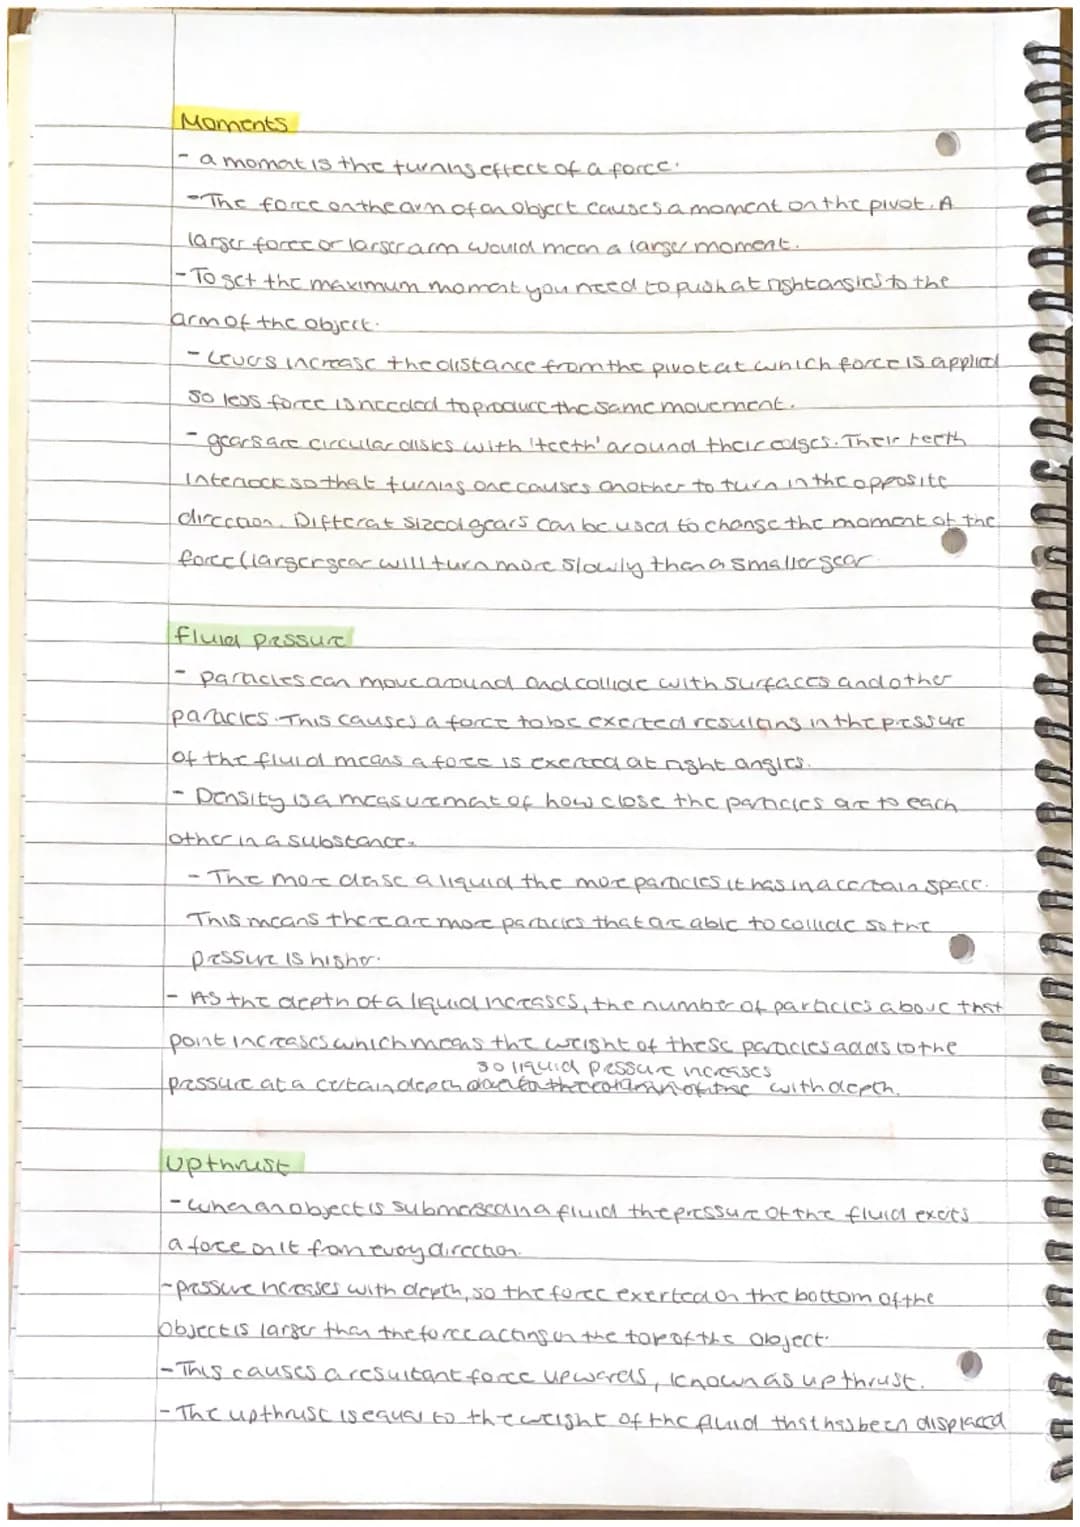 Moments
- a moment is the turning effect of a force.
- The force on the arm of an object causes a moment on the pivot. A
larger force or larger arm would mean a larger moment.
- To get the maximum moment you need to push at right angles to the
arm of the object.
- Levers increase the distance from the pivot at which force is applied
so less force is needed to produce the same movement.
- gears are circular disks with 'teeth' around their edges. Their teeth
interlock so that turning one causes another to turn in the opposite
direction. Different sized gears can be used to change the moment of the
force (larger gear will turn more slowly than a smaller gear
fluid pressure
- particles can move around and collide with surfaces and other
particles. This causes a force to be exerted resulting in the pressure
of the fluid means a force is exerted at right angles.
- Density is a measurement of how close the particles are to each
other in a substance.
- The more dense a liquid the more particles it has in a certain space.
This means there are more particles that are able to collide so the
pressure is higher.
- As the depth of a liquid increases, the number of particles above that
point increases which means the weight of these particles adds to the
so liquid pressure increases
pressure at a certain depth due to the column of the with depth.
Upthrust
- when an object is submerged in a fluid the pressure of the fluid exerts
a force on it from every direction.
- pressure increases with depth, so the force exerted on the bottom of the
object is larger than the force acting on the top of the object.
- This causes a resultant force upwards, known as upthrust.
- The upthrust is equal to the weight of the fluid that has been displaced